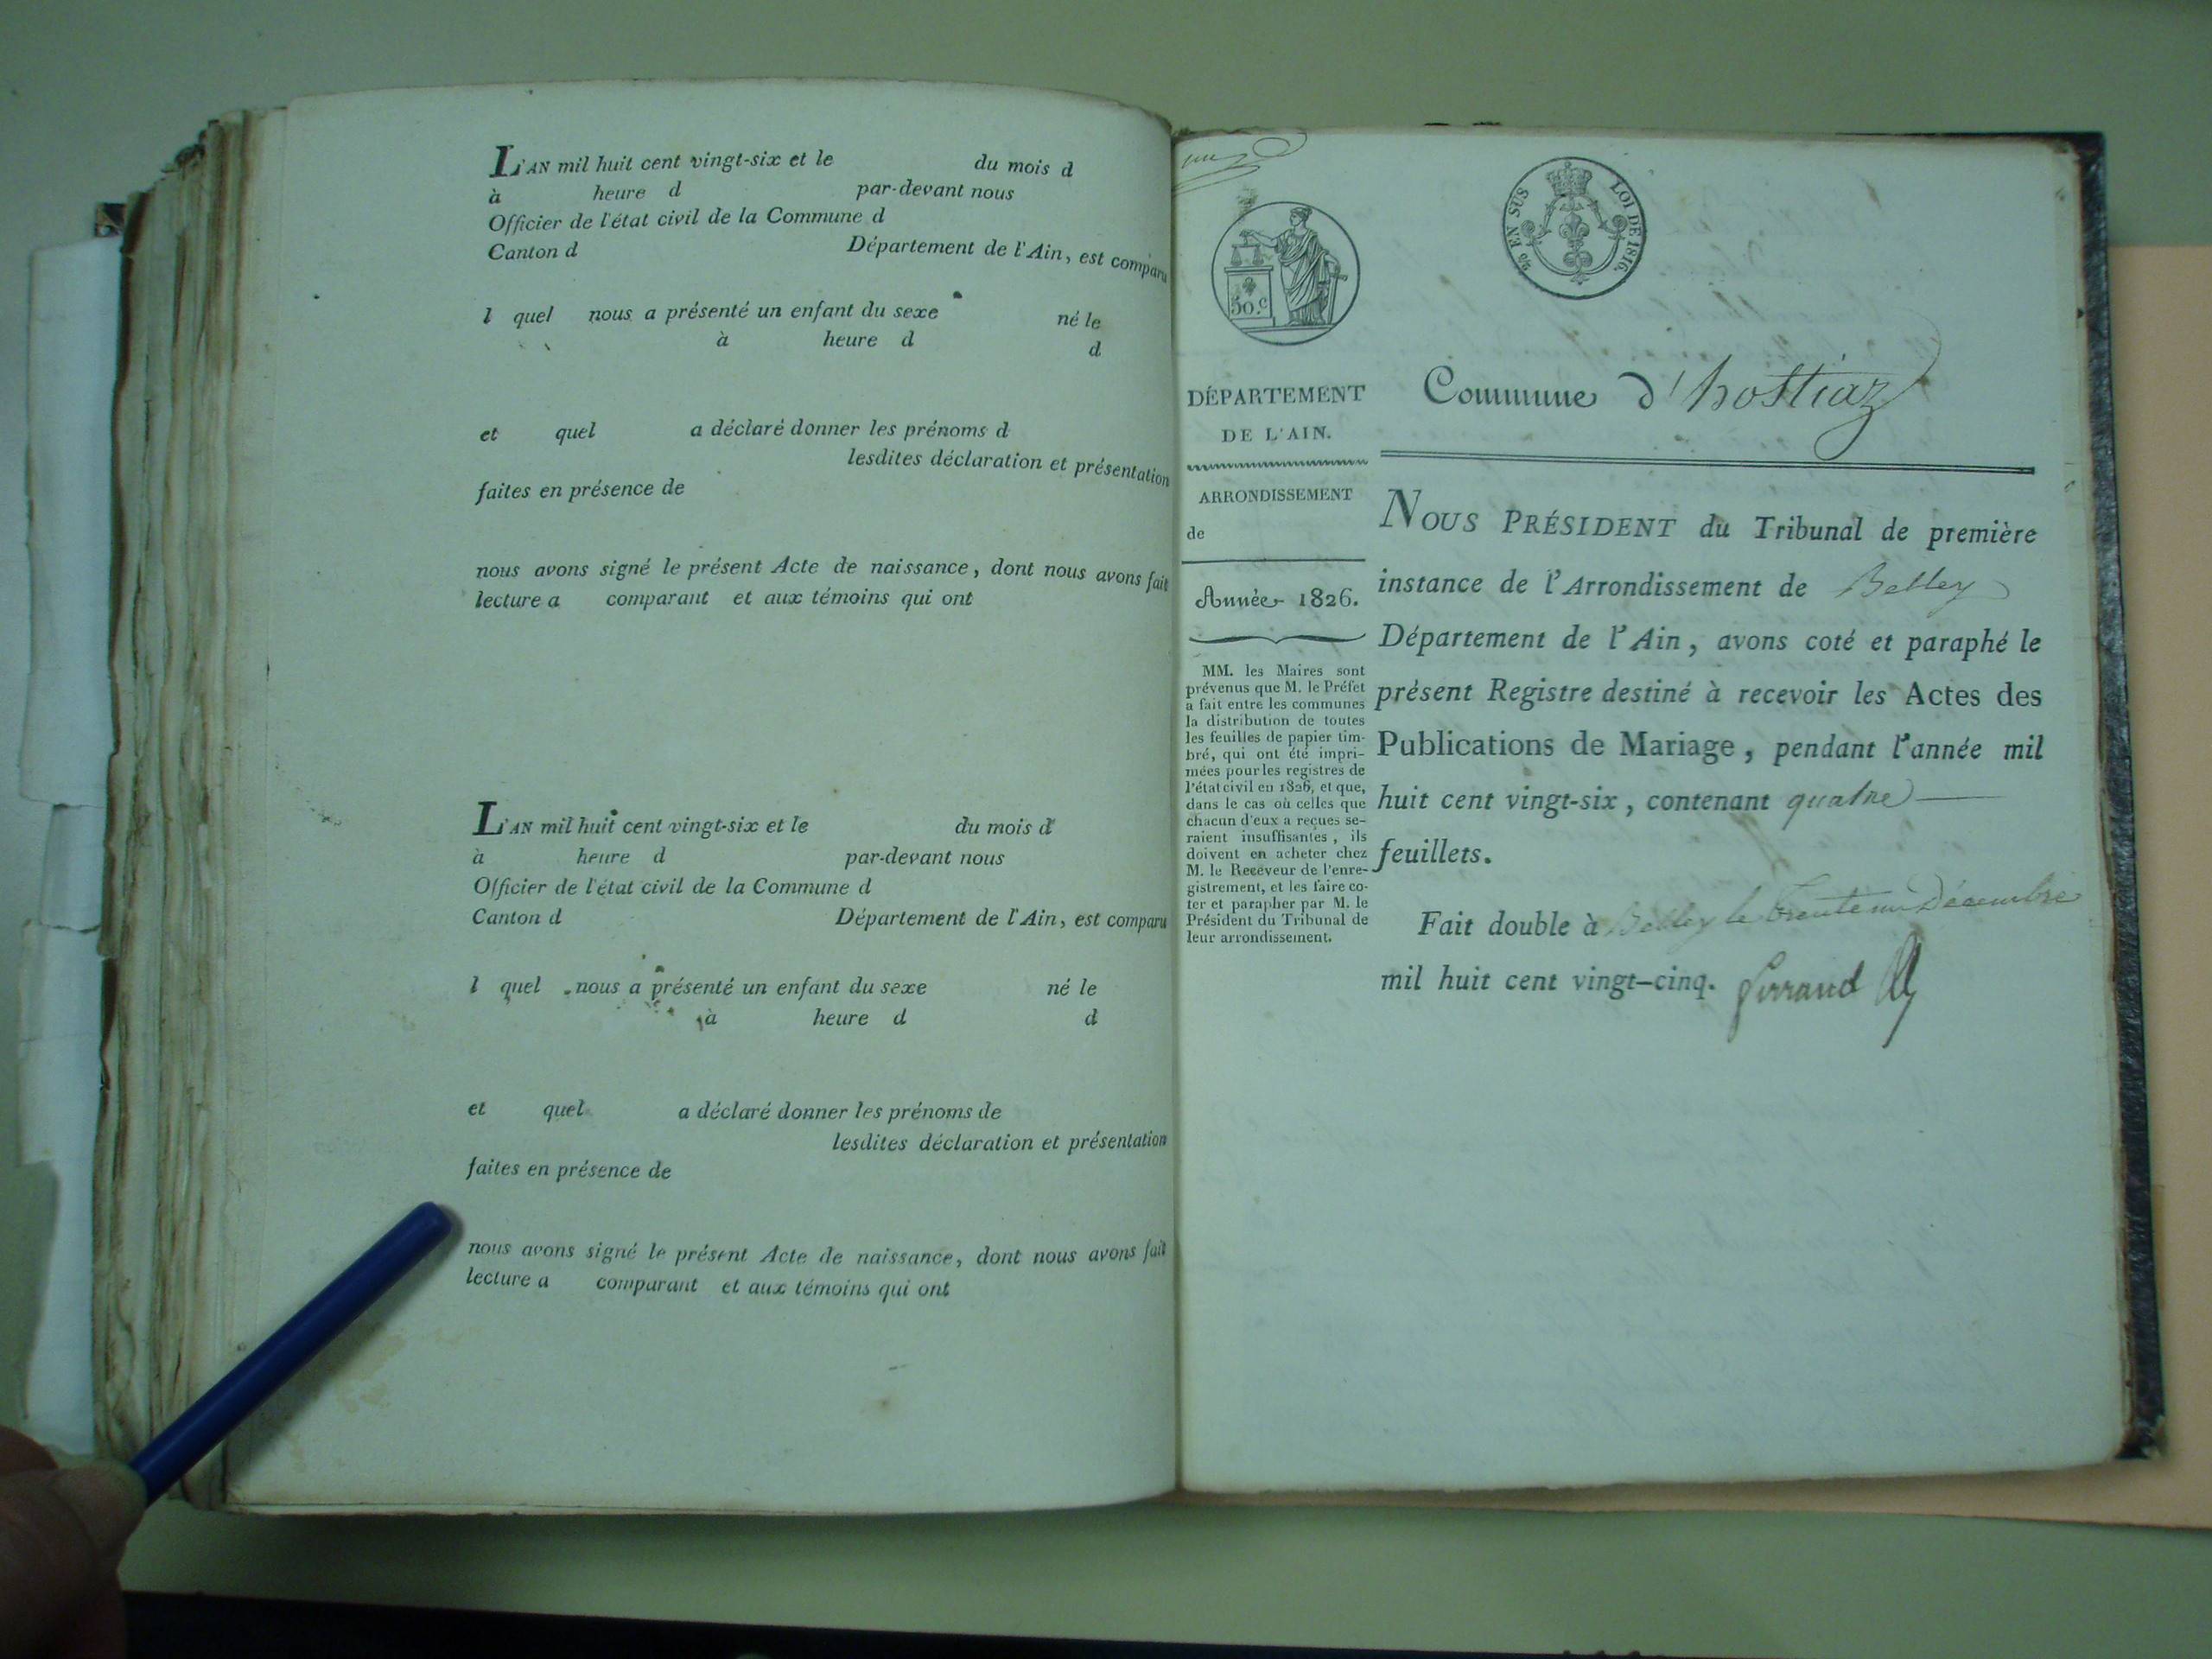 L'AN mil huit cent vingt-six et le du mois d
à heure d par-devant nous
Officier de l'état civil de la Commune d
Canton d Département de l'Ain, est comparu
l quel nous a présenté un enfant du sexe né le
à heure d d
et quel a déclaré donner les prénoms d
lesdites déclaration et présentation
faites en présence de
nous avons signé le présent Acte de naissance, dont nous avons fait
lecture a comparant et aux témoins qui ont
L'AN mil huit cent vingt-six et le du mois d
à heure d par-devant nous
Officier de l'état civil de la Commune d
Canton d Département de l'Ain, est comparu
l quel nous a présenté un enfant du sexe né le
à heure d d
et quel a déclaré donner les prénoms de
lesdites déclaration et présentation
faites en présence de
nous avons signé le présent Acte de naissance, dont nous avons fait
lecture a comparant et aux témoins qui ont
50.c
EN SUS LOI DE 1816.
DÉPARTEMENT
DE L'AIN.
ARRONDISSEMENT
de
Année 1826.
MM. les Maires sont
prévenus que M. le Préfet
a fait entre les communes
la distribution de toutes
les feuilles de papier tim-
bré, qui ont été impri-
mées pour les registres de
l'état civil en 1826, et que,
dans le cas où celles que
chacun d'eux a reçues se-
raient insuffisantes, ils
doivent en acheter chez
M. le Receveur de l'enre-
gistrement, et les faire co-
ter et parapher par M. le
Président du Tribunal de
leur arrondissement.
Commune d'hostiaz
NOUS PRÉSIDENT du Tribunal de première
instance de l'Arrondissement de Belley
Département de l'Ain, avons coté et paraphé le
présent Registre destiné à recevoir les Actes des
Publications de Mariage, pendant l'année mil
huit cent vingt-six, contenant quatre
feuillets.
Fait double à Belley le trente un Décembre
mil huit cent vingt-cinq.